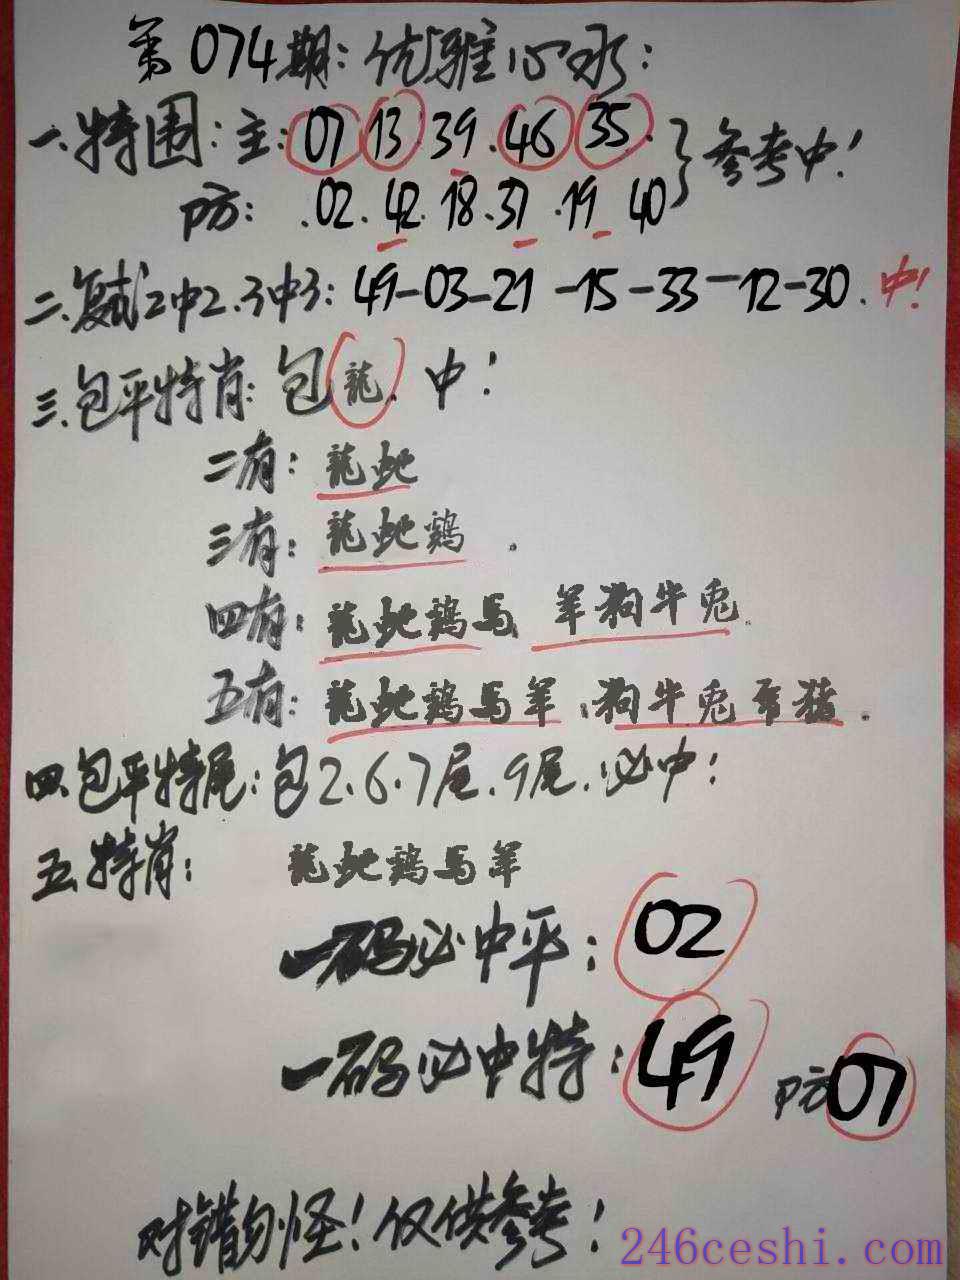 第074期：优雅心水：
一.特围：主：07 13.39.46 35.
参考中！
防：.02.42.18.37.19 40
二.复式2中2.3中3：49-03-21-15-33-12-30.中！
三.包平特肖：包龍.中！
二有：龍虵
三有：龍虵鷄.
四有：龍虵鷄馬 羊狗牛兎.
五有：龍虵鷄馬羊.狗牛兎 猪.
四.包平特尾：包2.6.7尾.9尾.必中！
五.特肖：龍虵鷄馬羊
一码必中平：02
一码必中特：49 防07
对错勿怪！仅供参考！
246ceshi.com